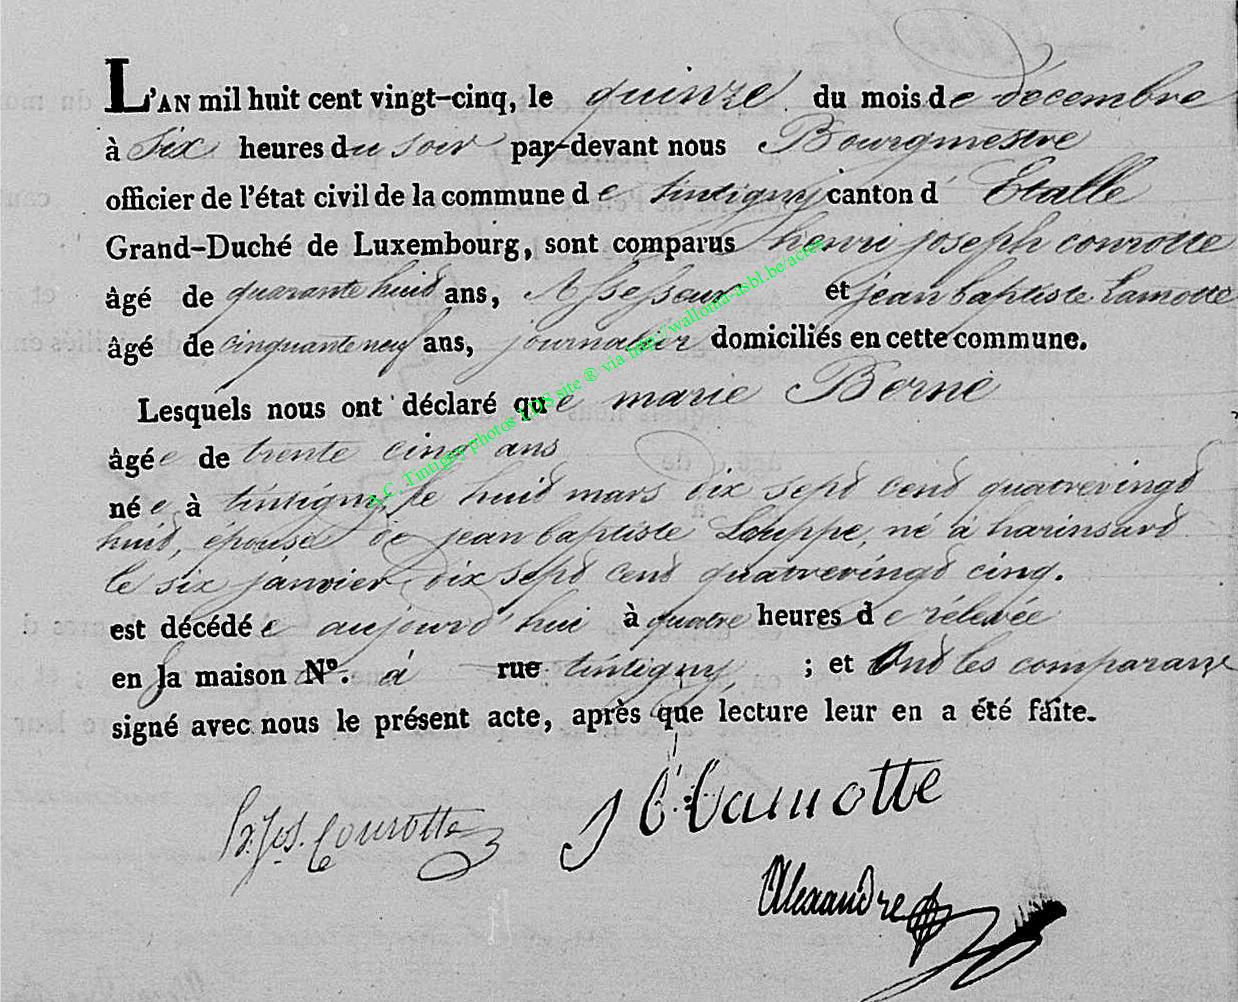 L'AN mil huit cent vingt-cinq, le quinze du mois de décembre
à six heures du soir par-devant nous Bourgmestre
officier de l'état civil de la commune de tintigny canton d' Etalle
Grand-Duché de Luxembourg, sont comparus henri joseph courotte
âgé de quarante huid ans, Assesseur et jean baptiste Lamotte
âgé de cinquante neuf ans, journalier domiciliés en cette commune.
Lesquels nous ont déclaré que marie Berne
âgée de trente cinq ans
née à tintigny le huid mars dix sepd cend quatrevingd
huid, épouse de jean baptiste Louppe, né à harinsard
le six janvier dix sepd cend quatrevingd cinq.
est décédée aujourd'hui à quatre heures de rélevée
en la maison N.º à rue tintigny ; et Ond les comparans
signé avec nous le présent acte, après que lecture leur en a été faite.
h. Jos. Courotte
J b Lamotte
Alexandre
A.C. Tintigny photos LDS site ® via http://wallonia-asbl.be/actes